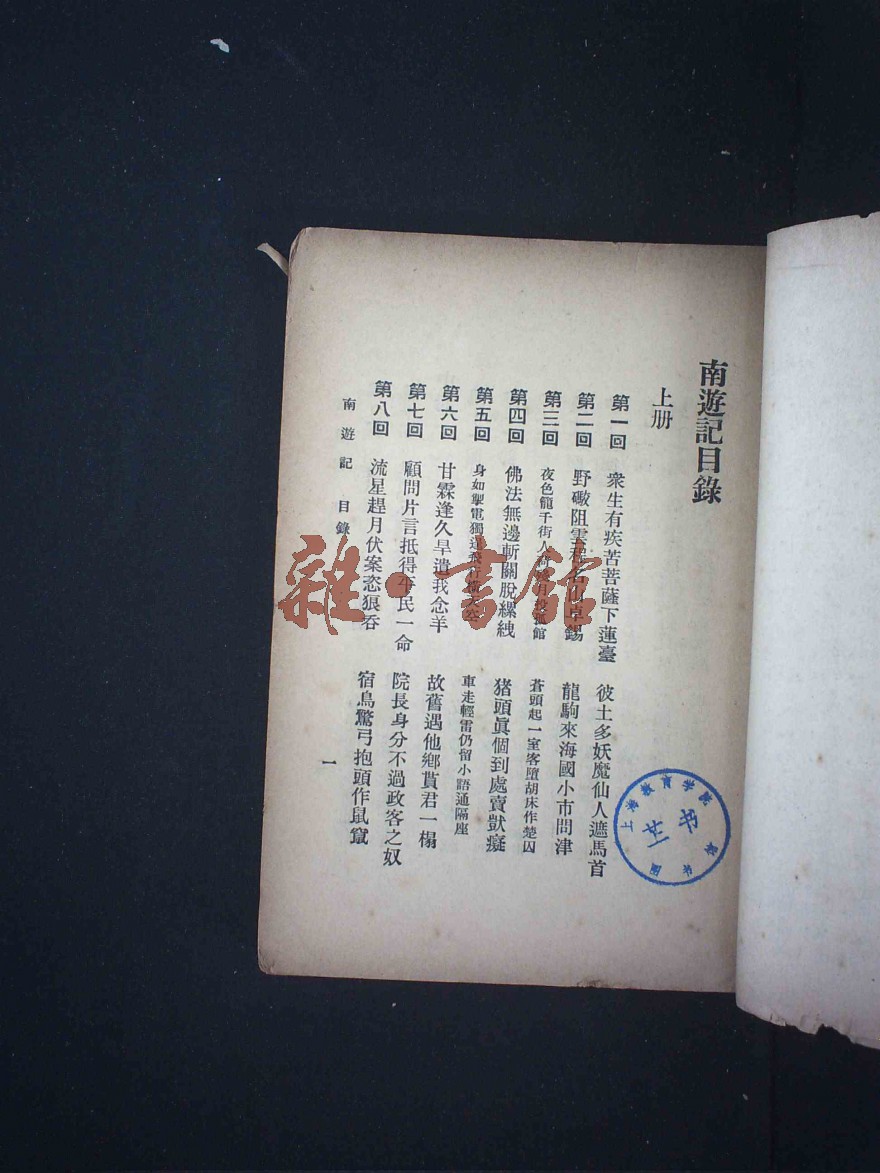 南遊記目錄
上册
第一回 衆生有疾苦菩薩下蓮臺 彼土多妖魔仙人遮馬首
第二回 野礮阻雲程名山卓錫 龍駒來海國小市問津
第三回 夜色籠千街人 月 孤館 蒼頭起一室客墮胡床作楚囚
第四回 佛法無邊斬關脫縲絏 猪頭眞個到處賣獃癡
第五回 身如掣電獨 飛 太空 車走輕雷仍留小語通隔座
第六回 甘霖逢久旱遺我念羊 故舊遇他鄉貰君一榻
第七回 顧問片言抵得平民一命 院長身分不過政客之奴
第八回 流星趕月伏案恣狼吞 宿鳥驚弓抱頭作鼠竄
南遊記 目錄
一
雜·書館
上海教育学院
图书馆